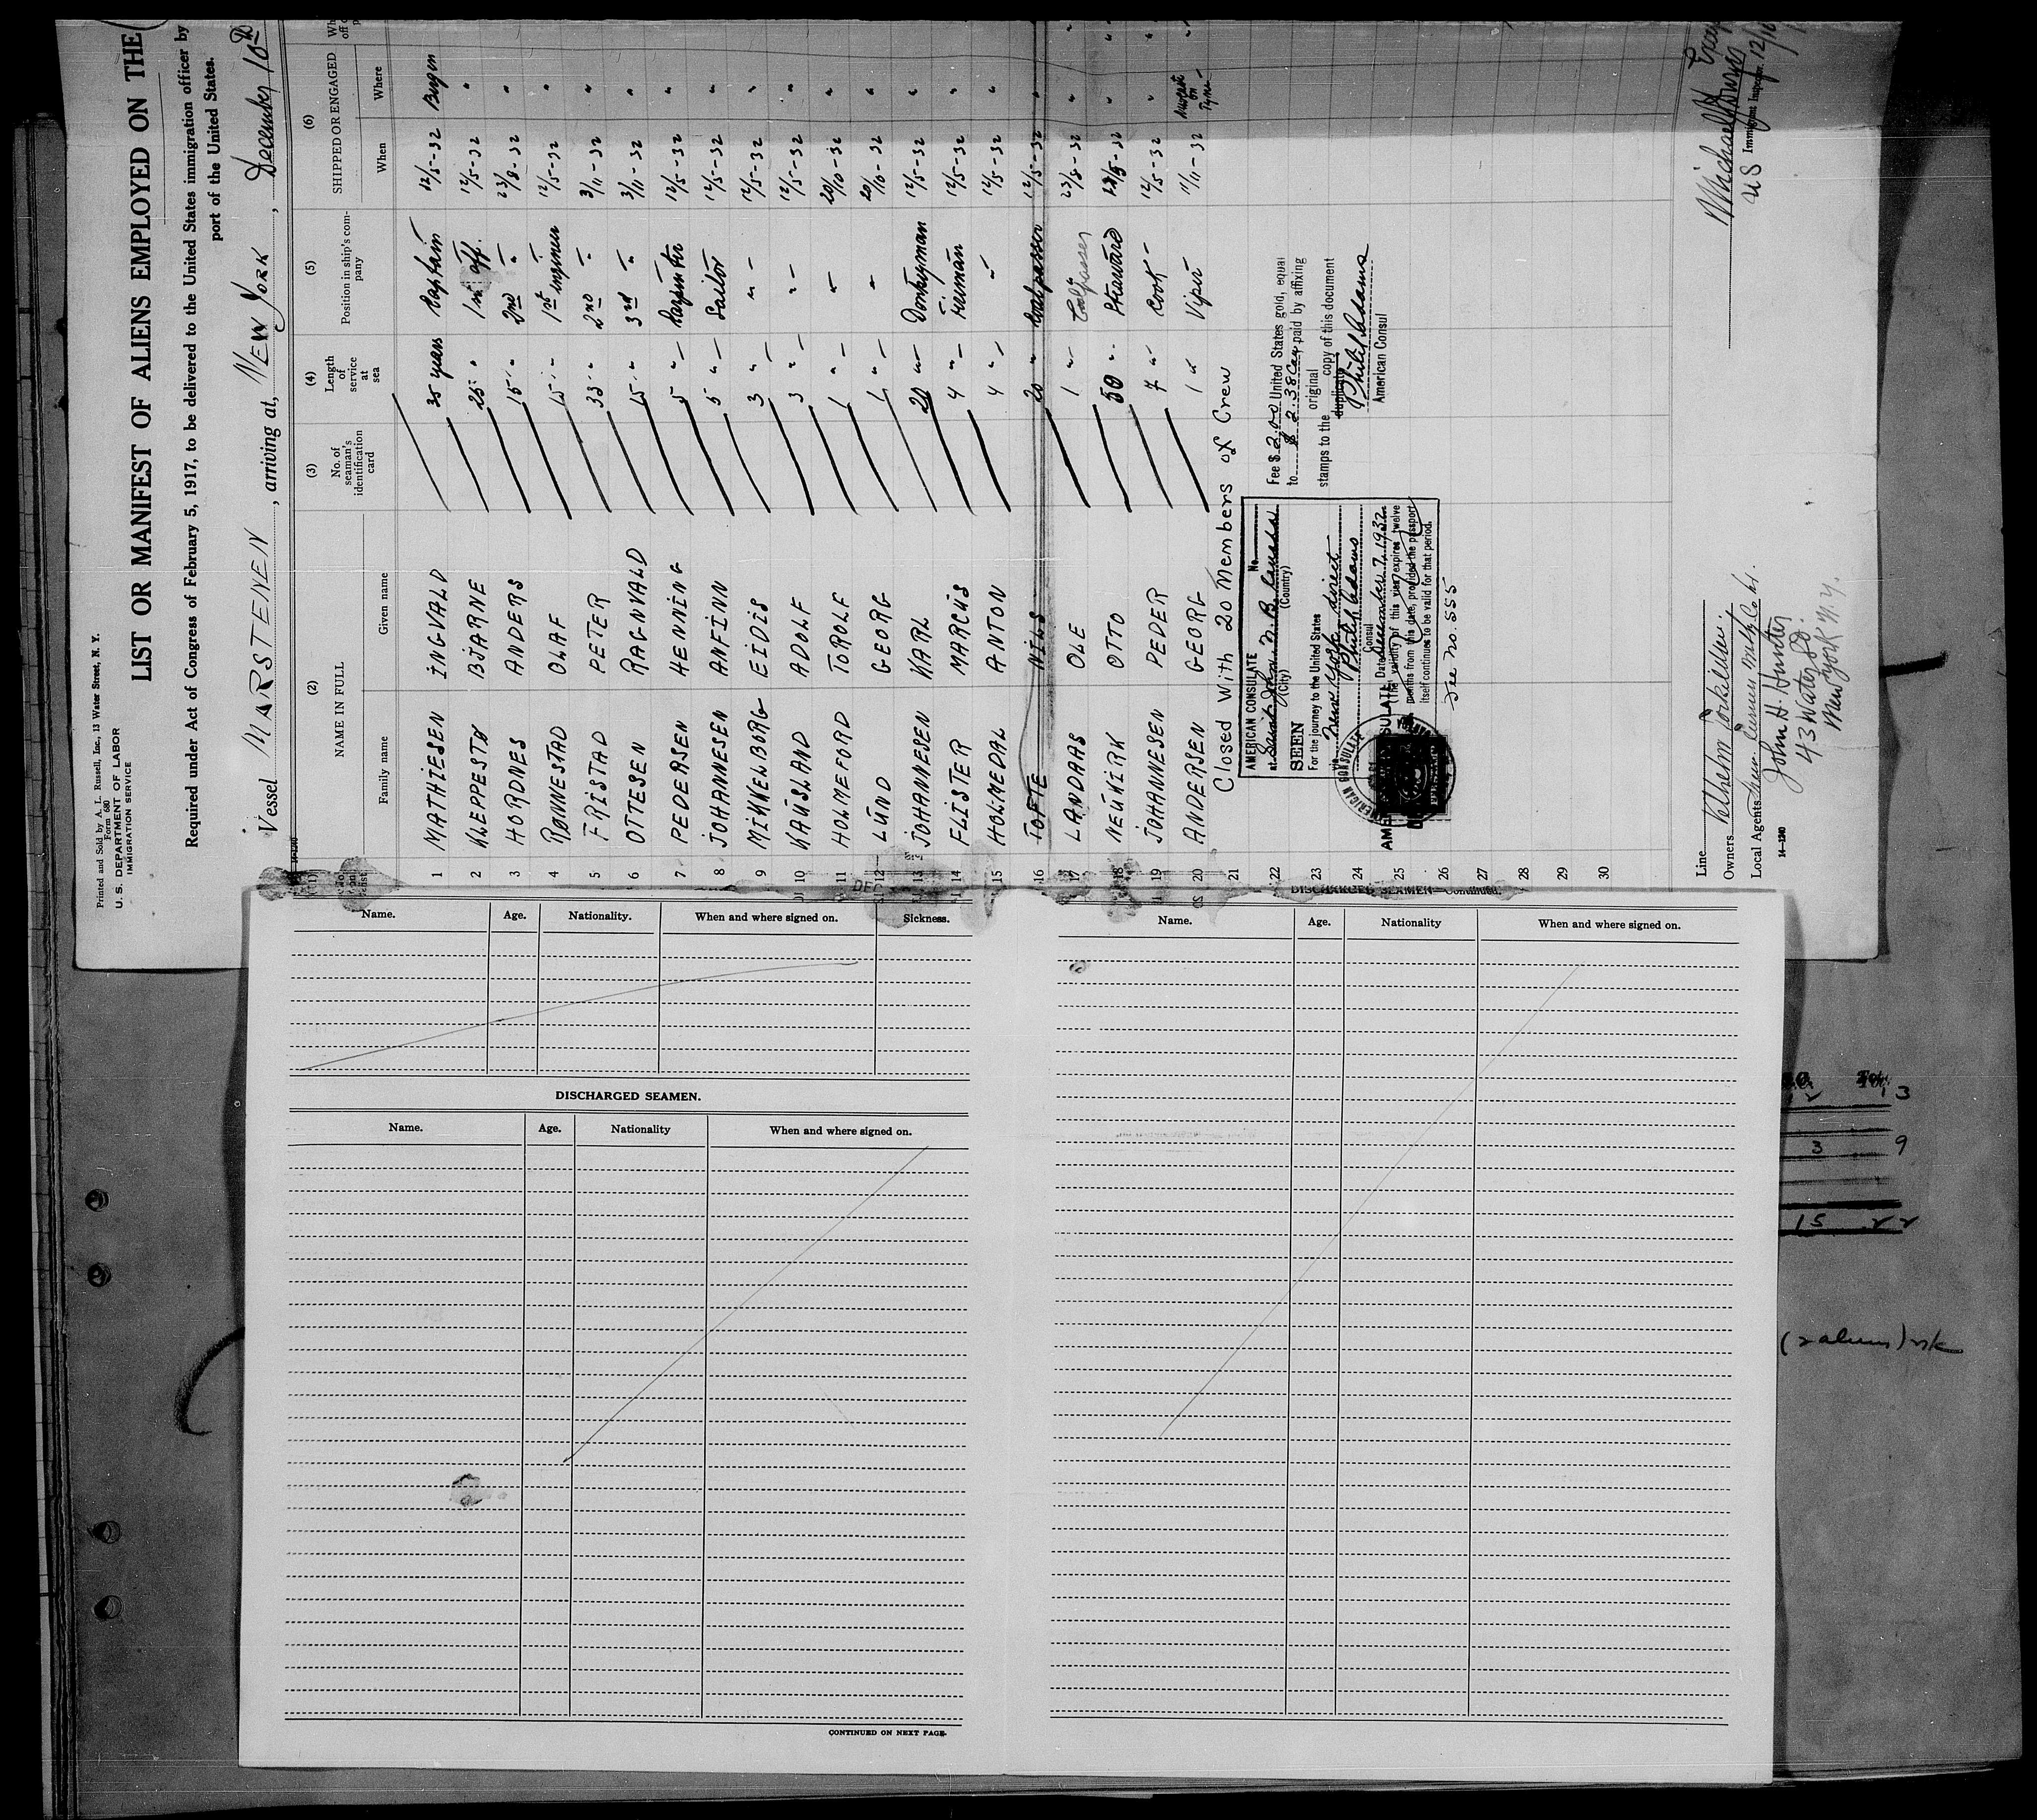 Printed and Sold by A. L. Russell, Inc., 13 Water Street, N. Y.
Form 680
U. S. DEPARTMENT OF LABOR
IMMIGRATION SERVICE
LIST OR MANIFEST OF ALIENS EMPLOYED ON THE
Required under Act of Congress of February 5, 1917, to be delivered to the United States immigration officer by
port of the United States.
Vessel MARSTENEN, arriving at, NEW YORK, December 10th
(1) (2) (3) (4) (5) (6)
NAME IN FULL
Family name Given name
No. of seaman's identification card
Length of service at sea
Position in ship's company
SHIPPED OR ENGAGED
When Where
1 MATHIESEN INGVALD 35 years Captain 12/5-32 Bergen
2 KLEPPESTØ BJARNE 25 " 1st off. 12/5-32 "
3 HORDNES ANDERS 15 " 2nd " 23/8-32 "
4 RØNNESTAD OLAF 15 " 1st engineer 12/5-32 "
5 FRISTAD PETER 33 " 2nd " 3/11-32 "
6 OTTESEN RAGNVALD 15 " 3rd " 3/11-32 "
7 PEDERSEN HENNING 5 " 12/5-32 "
8 JOHANNESEN ANFINN 5 " Sailor 12/5-32 "
9 MIKKELBORG EIDIS 3 " " 12/5-32 "
10 KAUSLAND ADOLF 3 " " 12/5-32 "
11 HOLMEFORD TOROLF 1 " " 20/10-32 "
12 LUND GEORG 1 " " 20/10-32 "
13 JOHANNESEN KARL 20 " Donkeyman 12/5-32 "
14 FLISTER MARCUS 4 " Fireman 12/5-32 "
15 HOLMEDAL ANTON 4 " " 12/5-32 "
16 TOFTE NILS 20 " Coalpasser 12/5-32 "
17 LANDAAS OLE 1 " 23/8-32 "
18 NEUKIRK OTTO 50 " Steward "
19 JOHANNESEN PEDER 7 " Cook 12/5-32 "
20 ANDERSEN GEORG 1 " 11/11-32 Newcastle on Tyne
21 Closed with 20 Members of Crew
22
23
24
25
26
27
28
29
30
AMERICAN CONSULATE No.
at Saint John, N. B. Canada
(City) (Country)
SEEN
For the journey to the United States
via New York direct
Philip Adams
Consul
Date December 7, 1932
(The validity of this visa expires twelve
months from this date, provided the passport
itself continues to be valid for that period.
See No. 555
AMERICAN CONSULATE
Fee $ 2.00 United States gold, equal
to $ 2.38 Can paid by affixing
stamps to the original duplicate copy of this document
Philip Adams
American Consul
Line
Owners Vilhelm Torkildsen
Local Agents
John H. Hunter
43 Water St.
New York N.Y.
14—1240
Michael
US Immigrant Inspector. 12/10
Name. Age. Nationality. When and where signed on. Sickness.
DISCHARGED SEAMEN.
Name. Age. Nationality When and where signed on.
CONTINUED ON NEXT PAGE.
DISCHARGED SEAMEN—Continued.
Name. Age. Nationality When and where signed on.
3
3 9
15 22